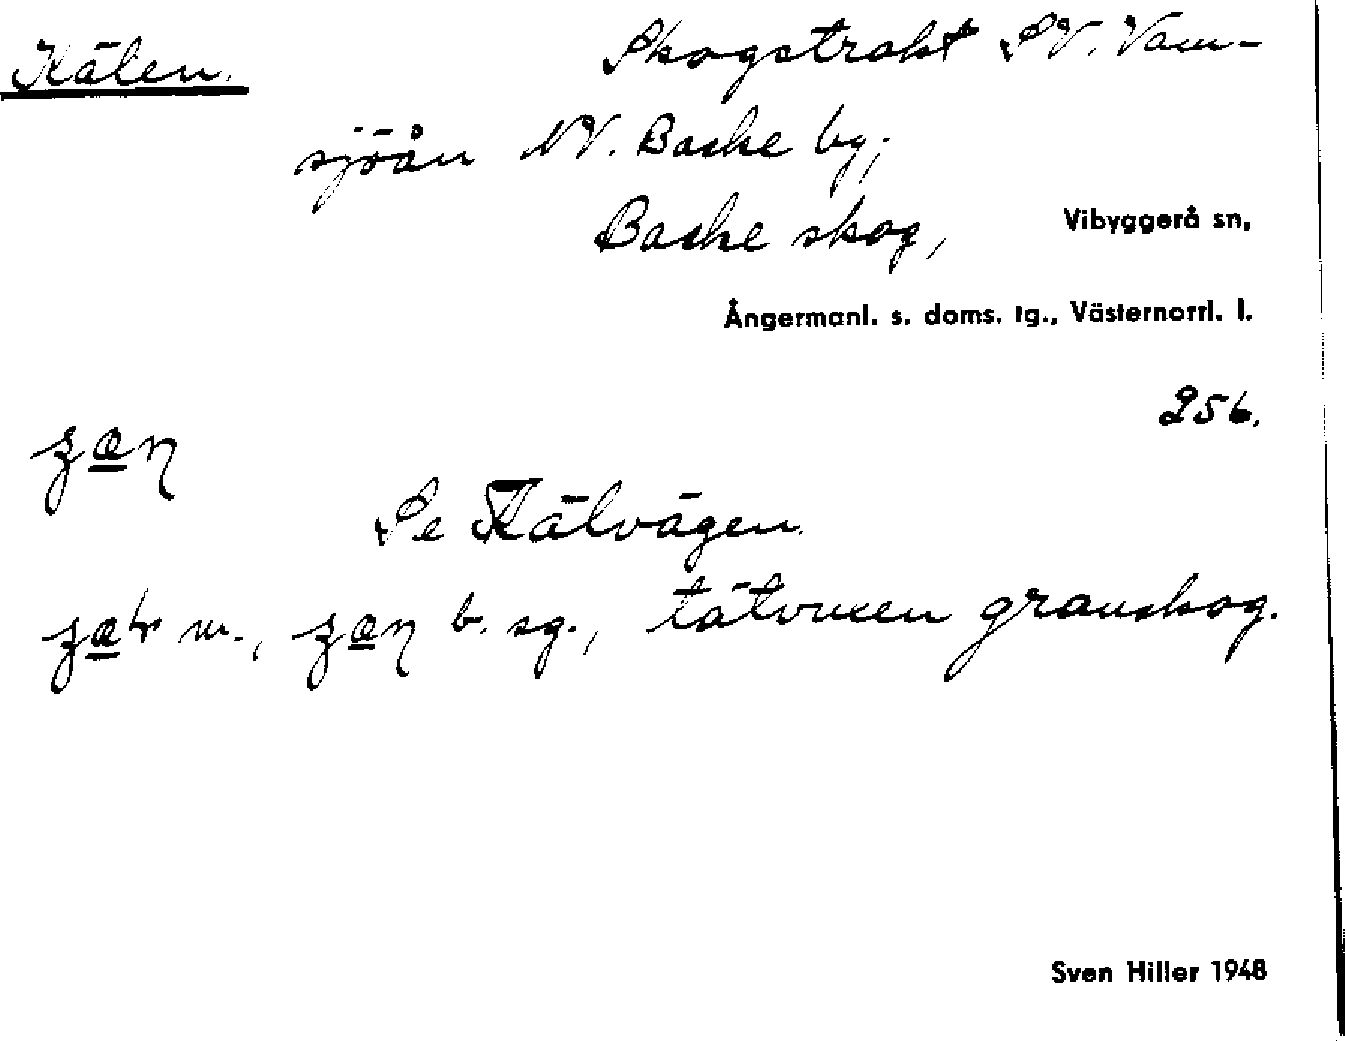 Kälen.
Skogstrakt SV. Vam-
sjöån NV. Backe by;
Backe skog,
Vibyggerå sn,
Ångermanl. s. doms. tg., Västernorrl. l.
256.
Se Kälvägen.
m., b. sg., tätvuxen granskog.
Sven Hiller 1948